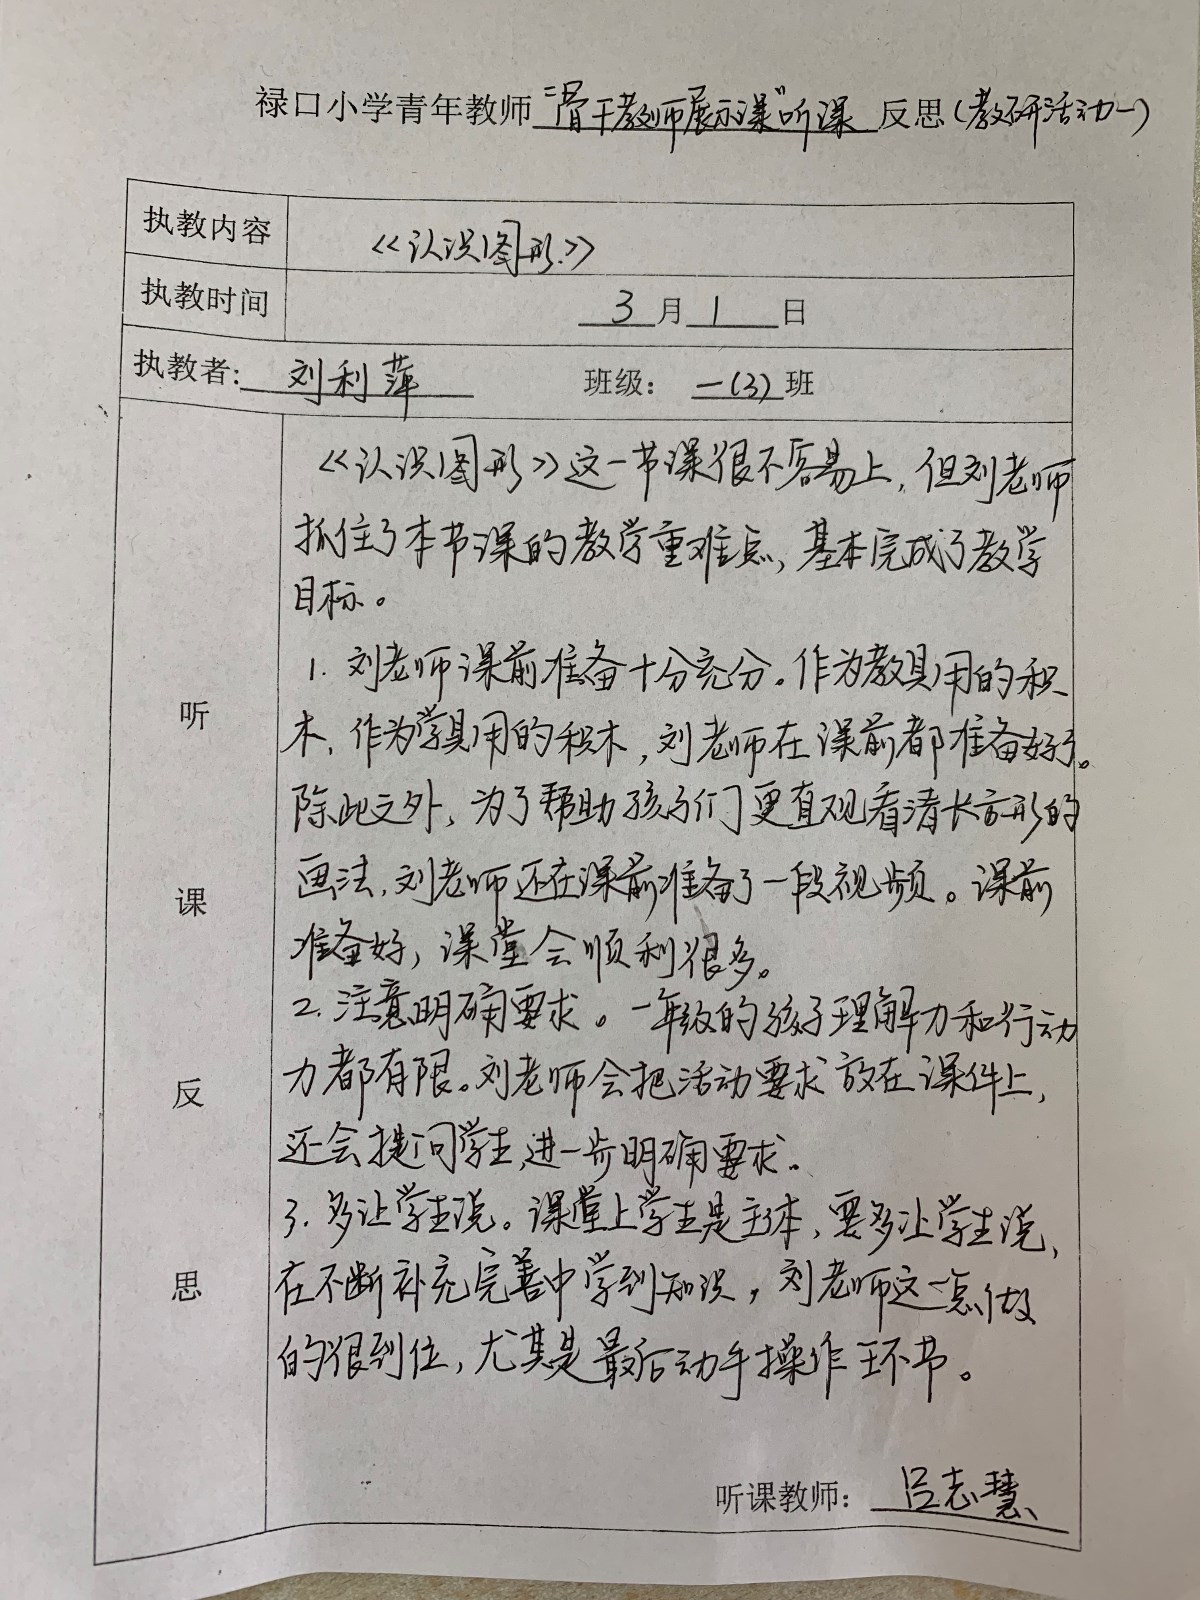 禄口小学青年教师“骨干教师展示课”听课 反思(教研活动一)
执教内容 《认识图形》
执教时间 3月1日
执教者: 刘利萍 班级: 一(3)班
听课反思
《认识图形》这一节课很不容易上，但刘老师
抓住了本节课的教学重难点，基本完成了教学
目标。
1. 刘老师课前准备十分充分。作为教具用的积
木，作为学具用的积木，刘老师在课前都准备好了。
除此之外，为了帮助孩子们更直观看清长方形的
画法，刘老师还在课前准备了一段视频。课前
准备好，课堂会顺利很多。
2. 注意明确要求。一年级的孩子理解力和行动
力都有限。刘老师会把活动要求放在课件上，
还会提问学生，进一步明确要求。
3. 多让学生说。课堂上学生是主体，要多让学生说，
在不断补充完善中学到知识，刘老师这一点做
的很到位，尤其是最后动手操作环节。
听课教师: 吕志慧